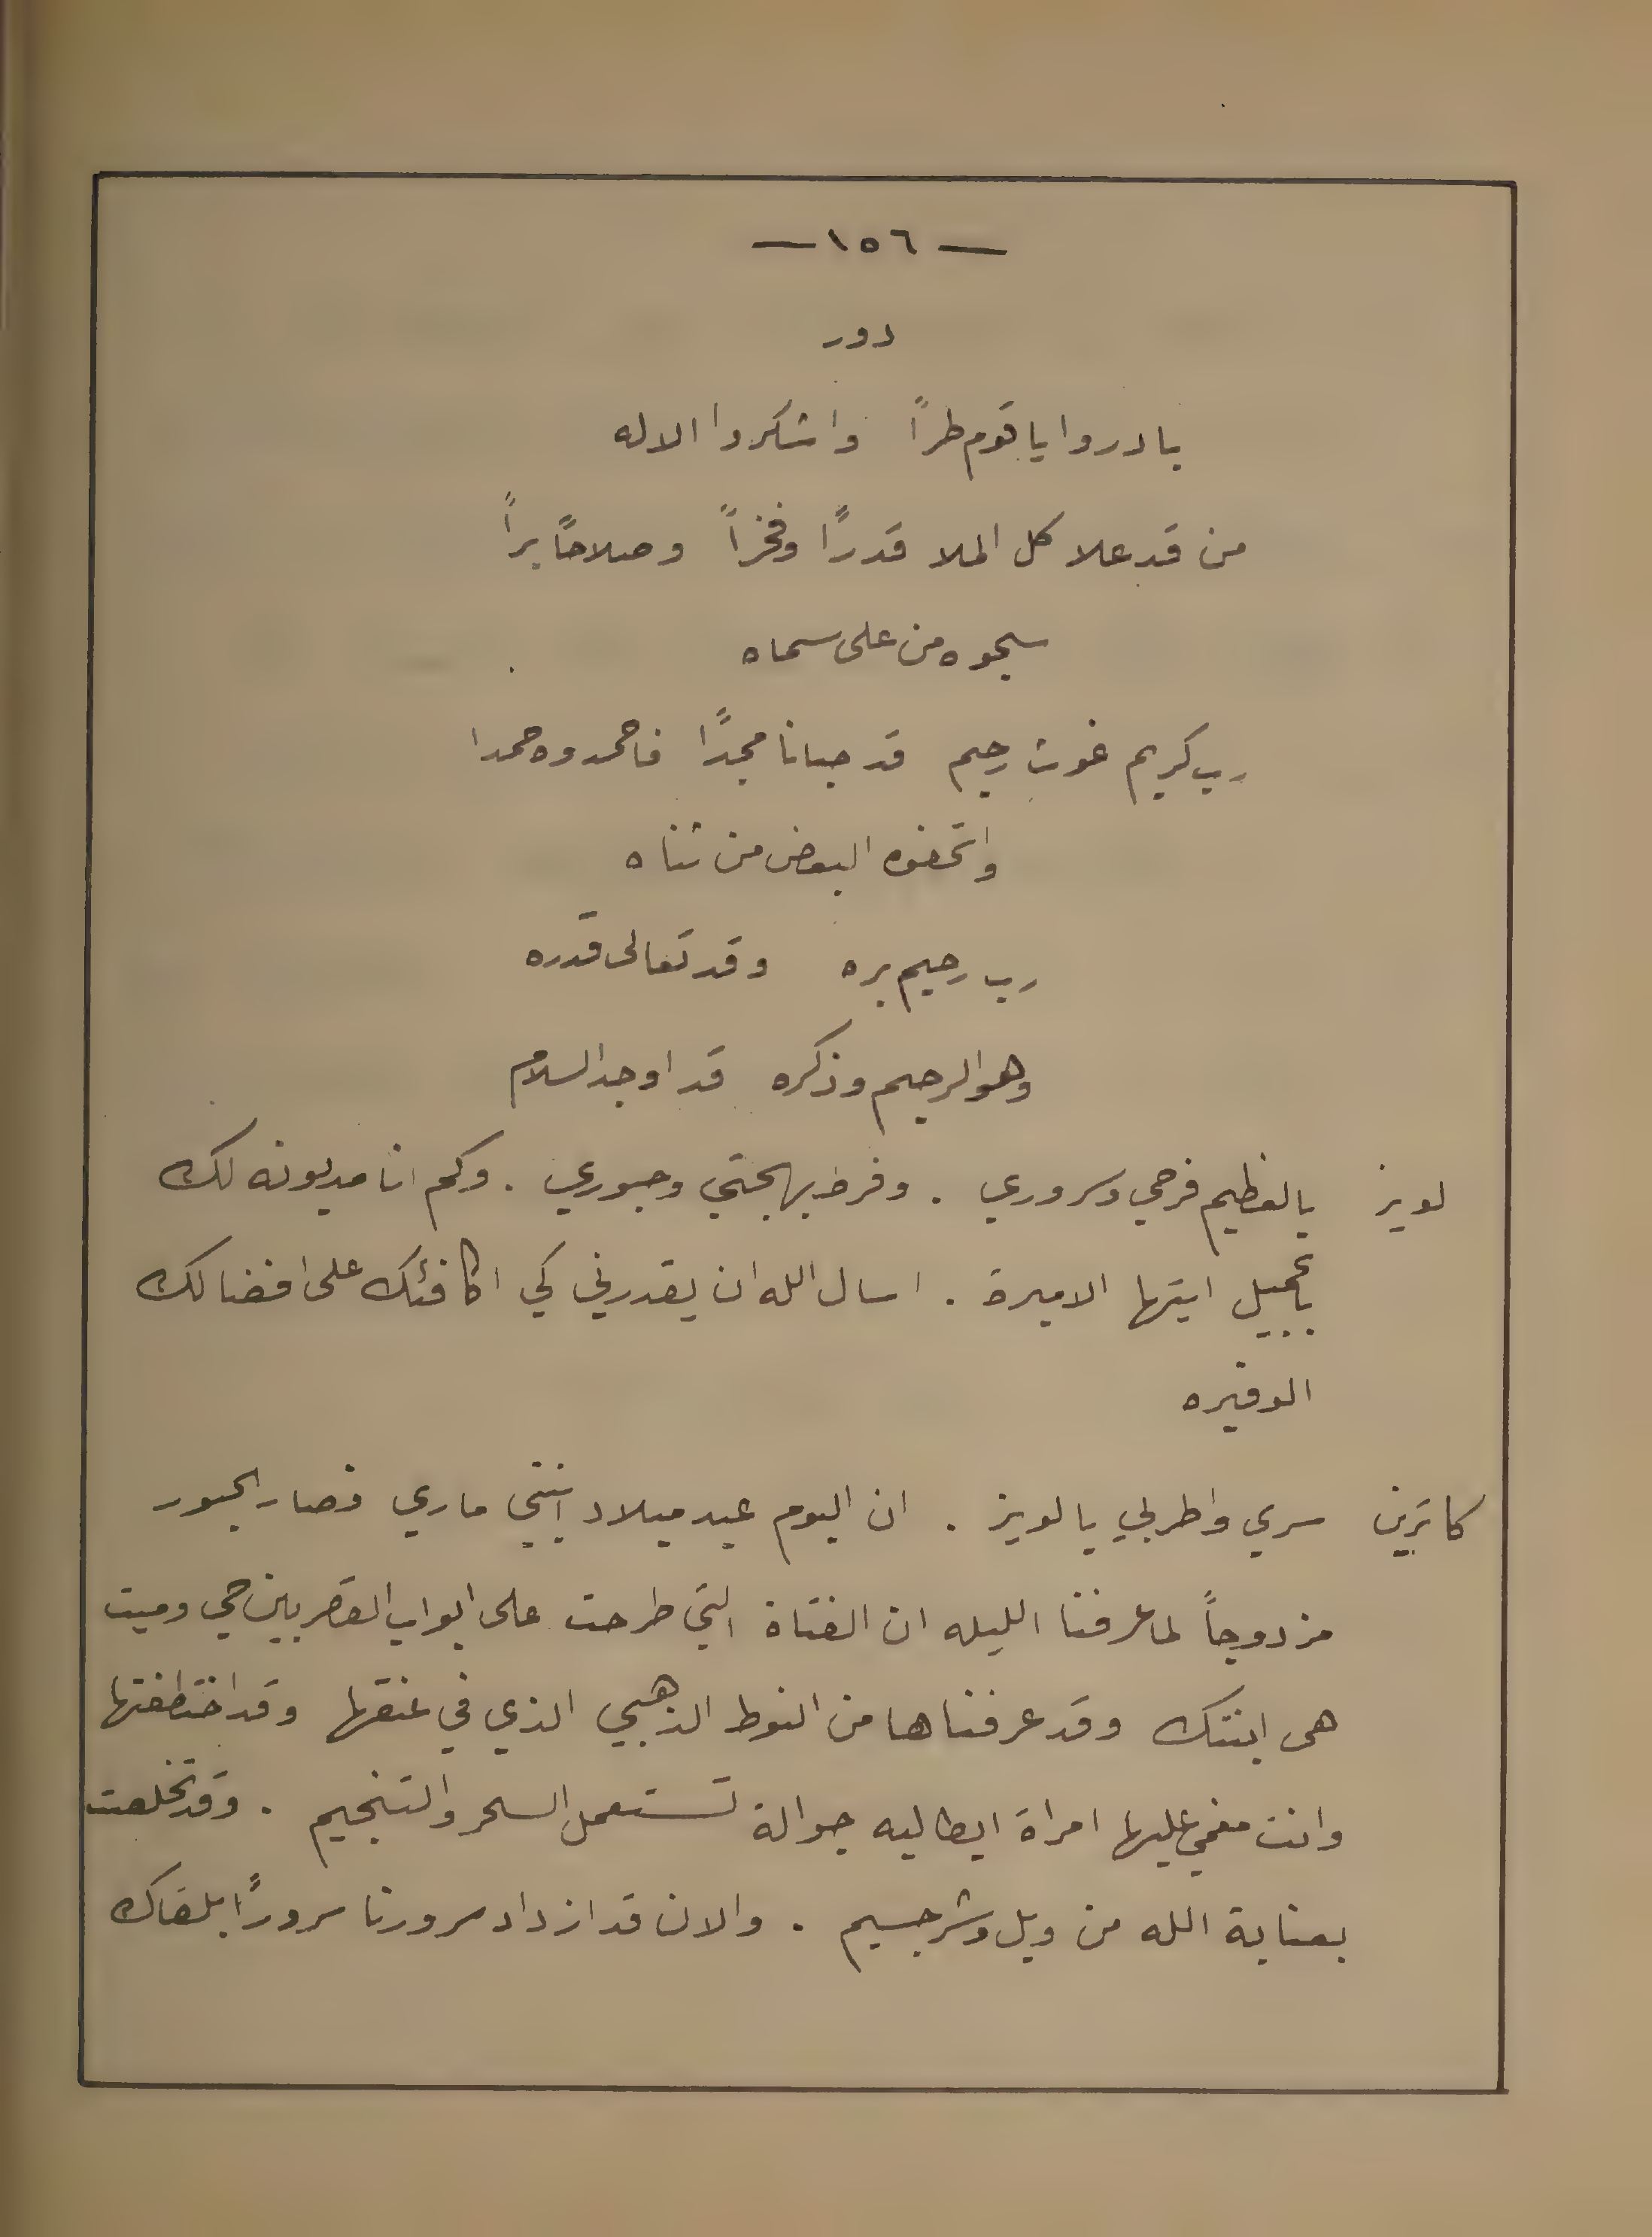 — ١٥٦ —
دور
بادروا يا قوم طراً واشكروا الاله
من قد علا كل الملا قدرًا وفخراً وصلاحًا براً
سبحوه من على سماه
رب كريم غوث رحيم قد حبانا مجدًا فاحمدوه حمدا
واتحفوه البعض من ثناه
رب رحيم بره وقد تعالى قدره
وهو الرحيم وذكره قد اوجد السلام
لويز يا لعظيم فرحي وسروري . وفرط بهجتي وحبوري . وكم انا مديونه لك
بالجميل ايتها الاميرة . اسال الله ان يقدرني كي اكافئك على افضالك
الوفيره
كاترين سري واطربي يا لويز . ان اليوم عيد ميلاد ابنتي ماري فصار الحبور
مزدوجاً لما عرفنا الليله ان الفتاة التي طرحت على ابواب القصر بين حي وميت
هى ابنتك وقد عرفناها من النوط الذهبي الذي في عنقها وقد اختطفتها
وانت مغمي عليها امراة ايطاليه جوالة تستعمل السحر والتنجيم . وقد تخلصت
بعناية الله من ويل وشر جسيم . والان قد ازداد سرورنا سرورًا بلقاك